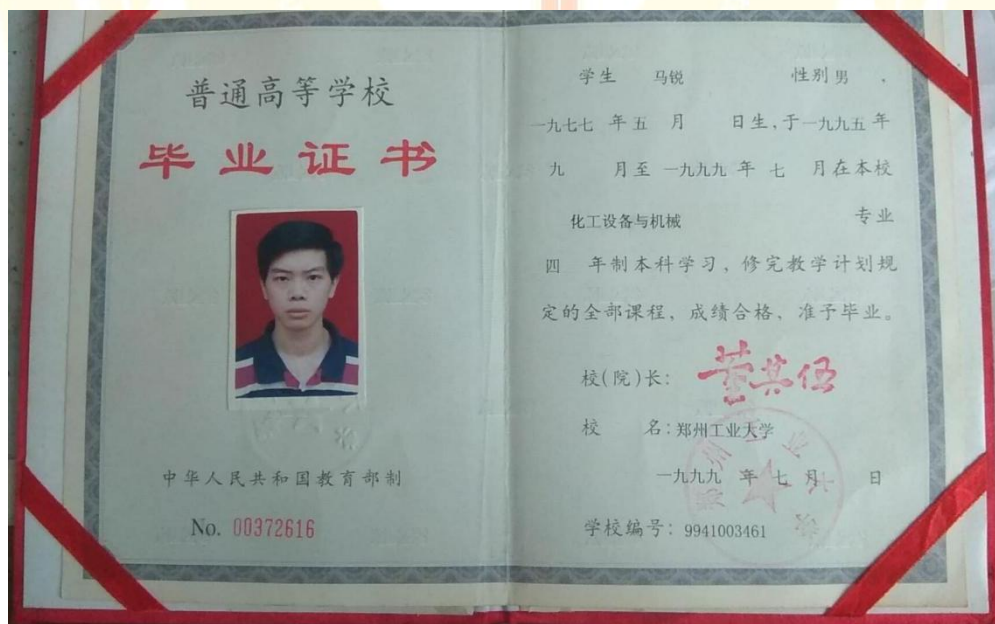 普通高等学校
毕业证书
中华人民共和国教育部制
No. 00372616
学生 马锐 性别 男 、
一九七七 年 五 月 日生，于 一九九五 年
九 月至 一九九九 年 七 月在本校
化工设备与机械 专业
四 年制本科学习、修完教学计划规
定的全部课程，成绩合格、准予毕业。
校(院)长: 董其伍
校 名: 郑州工业大学
一九九九 年 七 月 日
学校编号: 9941003461